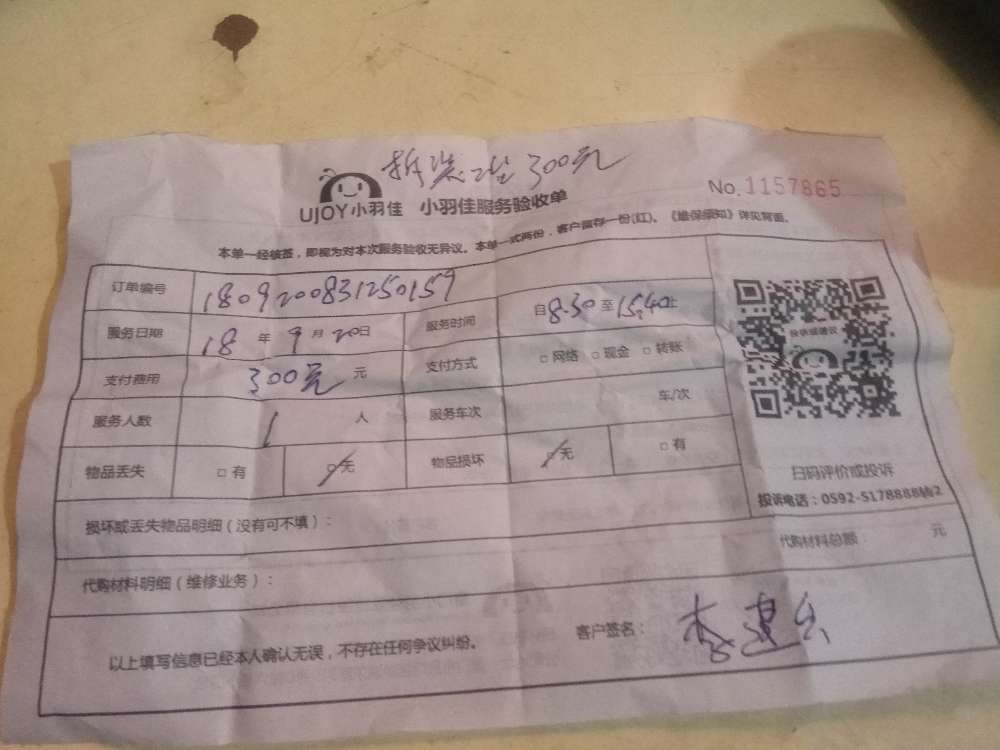 拆洗 300元
UJOY小羽佳 小羽佳服务验收单 No.1157865
本单一经核签，即视为对本次服务验收无异议。本单一式两份，客户留存一份(红)。《维保须知》详见背面。
订单编号 1809200831250159
服务日期 18 年 9 月 20 日 服务时间 自 8.30 至 15.40 止
支付费用 300元 元 支付方式 □ 网络 □ 现金 □ 转账
服务人数 1 人 服务车次 车/次
物品丢失 □ 有 □ 无 物品损坏 □ 无 □ 有
扫码评价或投诉
投诉电话：0592-5178888转2
损坏或丢失物品明细（没有可不填）：
代购材料明细（维修业务）： 代购材料总额： 元
以上填写信息已经本人确认无误，不存在任何争议纠纷。 客户签名： 李建